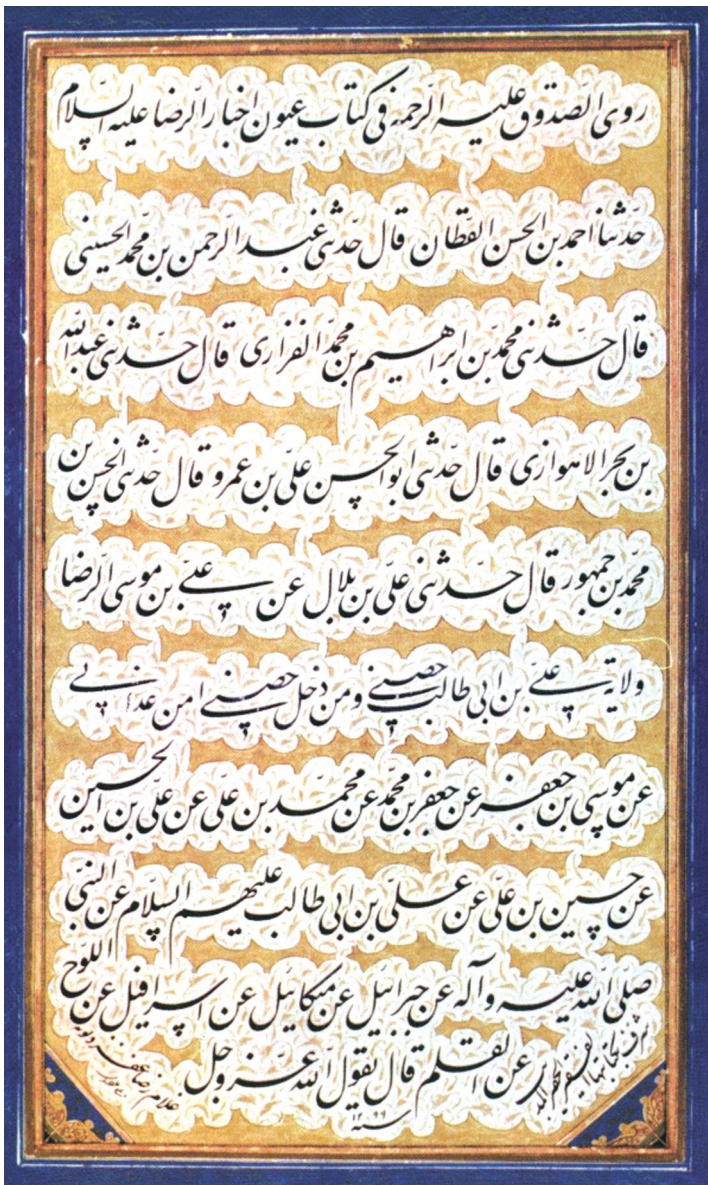 روی الصّدوق علیه الرّحمه فی کتاب عیون اخبار الرّضا علیه السّلام
حدّثنا احمد بن الحسن القطّان قال حدّثنی عبد الرّحمن بن محمّد الحسینی
قال حدّثنی محمّد بن ابراهیم بن محمّد الفزاری قال حدّثنی عبد الله
بن بحر الاهوازی قال حدّثنی ابو الحسن علیّ بن عمرو قال حدّثنی الحسن بن
محمّد بن جمهور قال حدّثنی علیّ بن بلال عن علیّ بن موسی الرّضا
ولایة علیّ بن ابی طالب حصنی ومن دخل حصنی امن عذابی
عن موسی بن جعفر عن جعفر بن محمّد عن محمّد بن علیّ عن علیّ بن الحسین
عن حسین بن علیّ عن علیّ بن ابی طالب علیهم السّلام عن النبیّ
صلّی الله علیه وآله عن جبرائیل عن میکائیل عن اسرافیل عن اللوح
عن القلم قال یقول الله عزّ وجل
غلامرضا غفر ذنوبه
سنه ۱۲۹۹